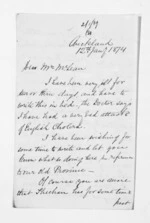 Auckland
12th Jany 1874
Dear Mr McLean
I have been very ill for
two or three days and have to
write this in bed. the Doctor says
I have had a very bad attack
of English Cholera.
I have been wishing for
some time to write and let you
know what is doing here in reference
to our old Province —
Of course you are aware
that Sheehan has for some time
past